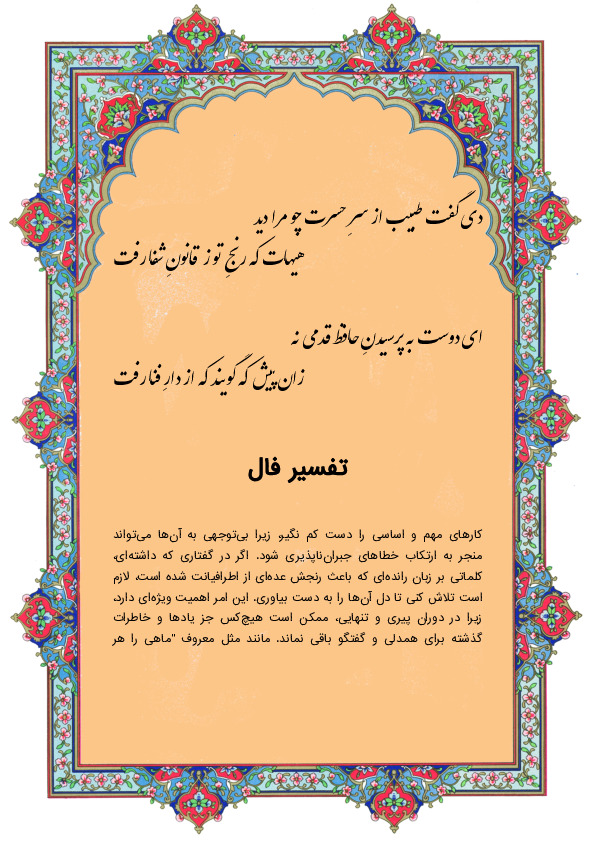 دی گفت طبیب از سرِ حسرت چو مرا دید
هیهات که رنجِ تو ز قانونِ شفا رفت
ای دوست به پرسیدنِ حافظ قدمی نه
زان پیش که گویند که از دارِ فنا رفت
تفسیر فال
کارهای مهم و اساسی را دست کم نگیر، زیرا بی‌توجهی به آن‌ها می‌تواند
منجر به ارتکاب خطاهای جبران‌ناپذیری شود. اگر در گفتاری که داشته‌ای،
کلماتی بر زبان رانده‌ای که باعث رنجش عده‌ای از اطرافیانت شده است، لازم
است تلاش کنی تا دل آن‌ها را به دست بیاوری. این امر اهمیت ویژه‌ای دارد،
زیرا در دوران پیری و تنهایی، ممکن است هیچ‌کس جز یادها و خاطرات
گذشته برای همدلی و گفتگو باقی نماند. مانند مثل معروف "ماهی را هر